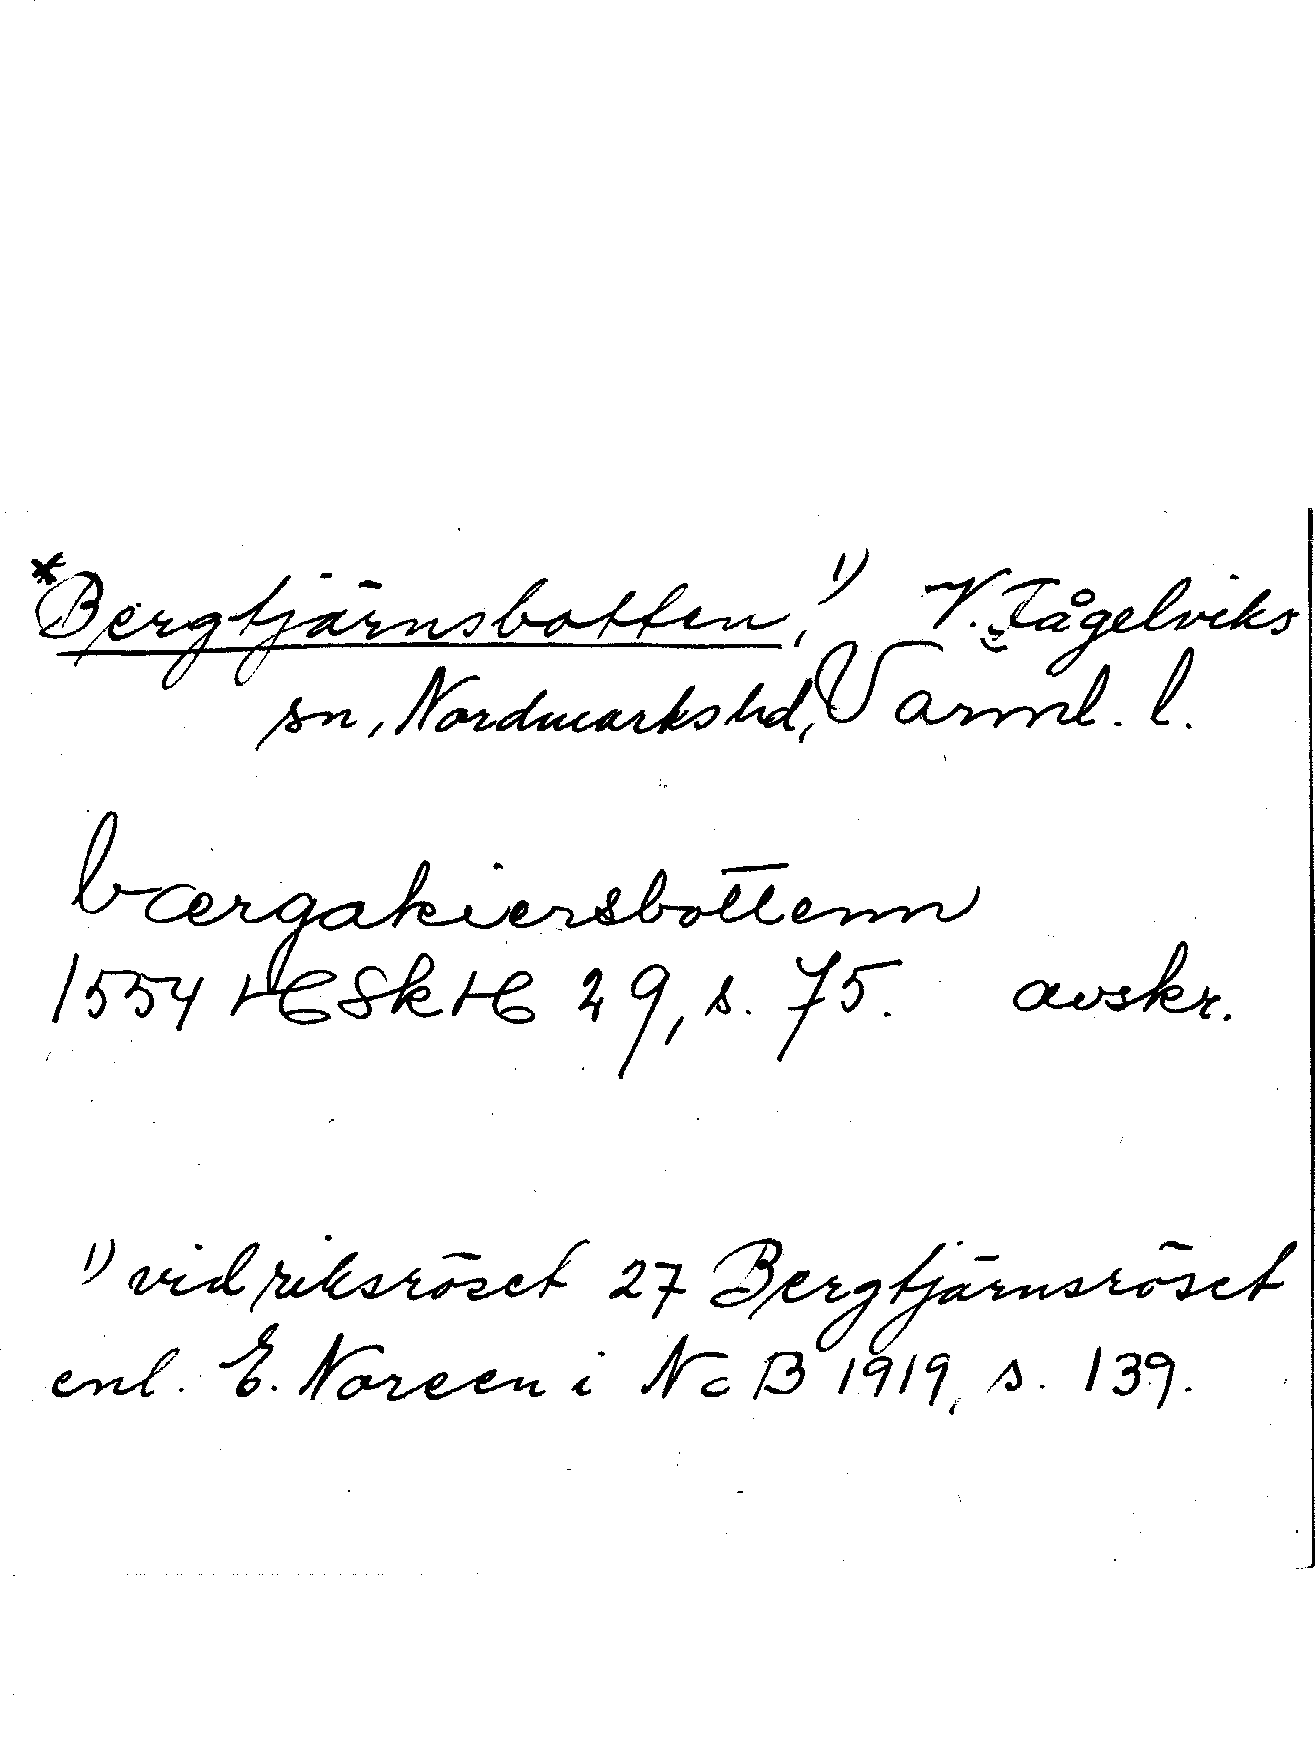 *Bergtjärnsbotten,¹⁾ V. Fågelviks
sn, Nordmarks hd, Värml. l.
bærgakiersbottenn
1554 HSkH 29, s. 75. avskr.
¹⁾ vid riksröset 27 Bergtjärnsröset
enl. E. Noreen i NoB 1919, s. 139.